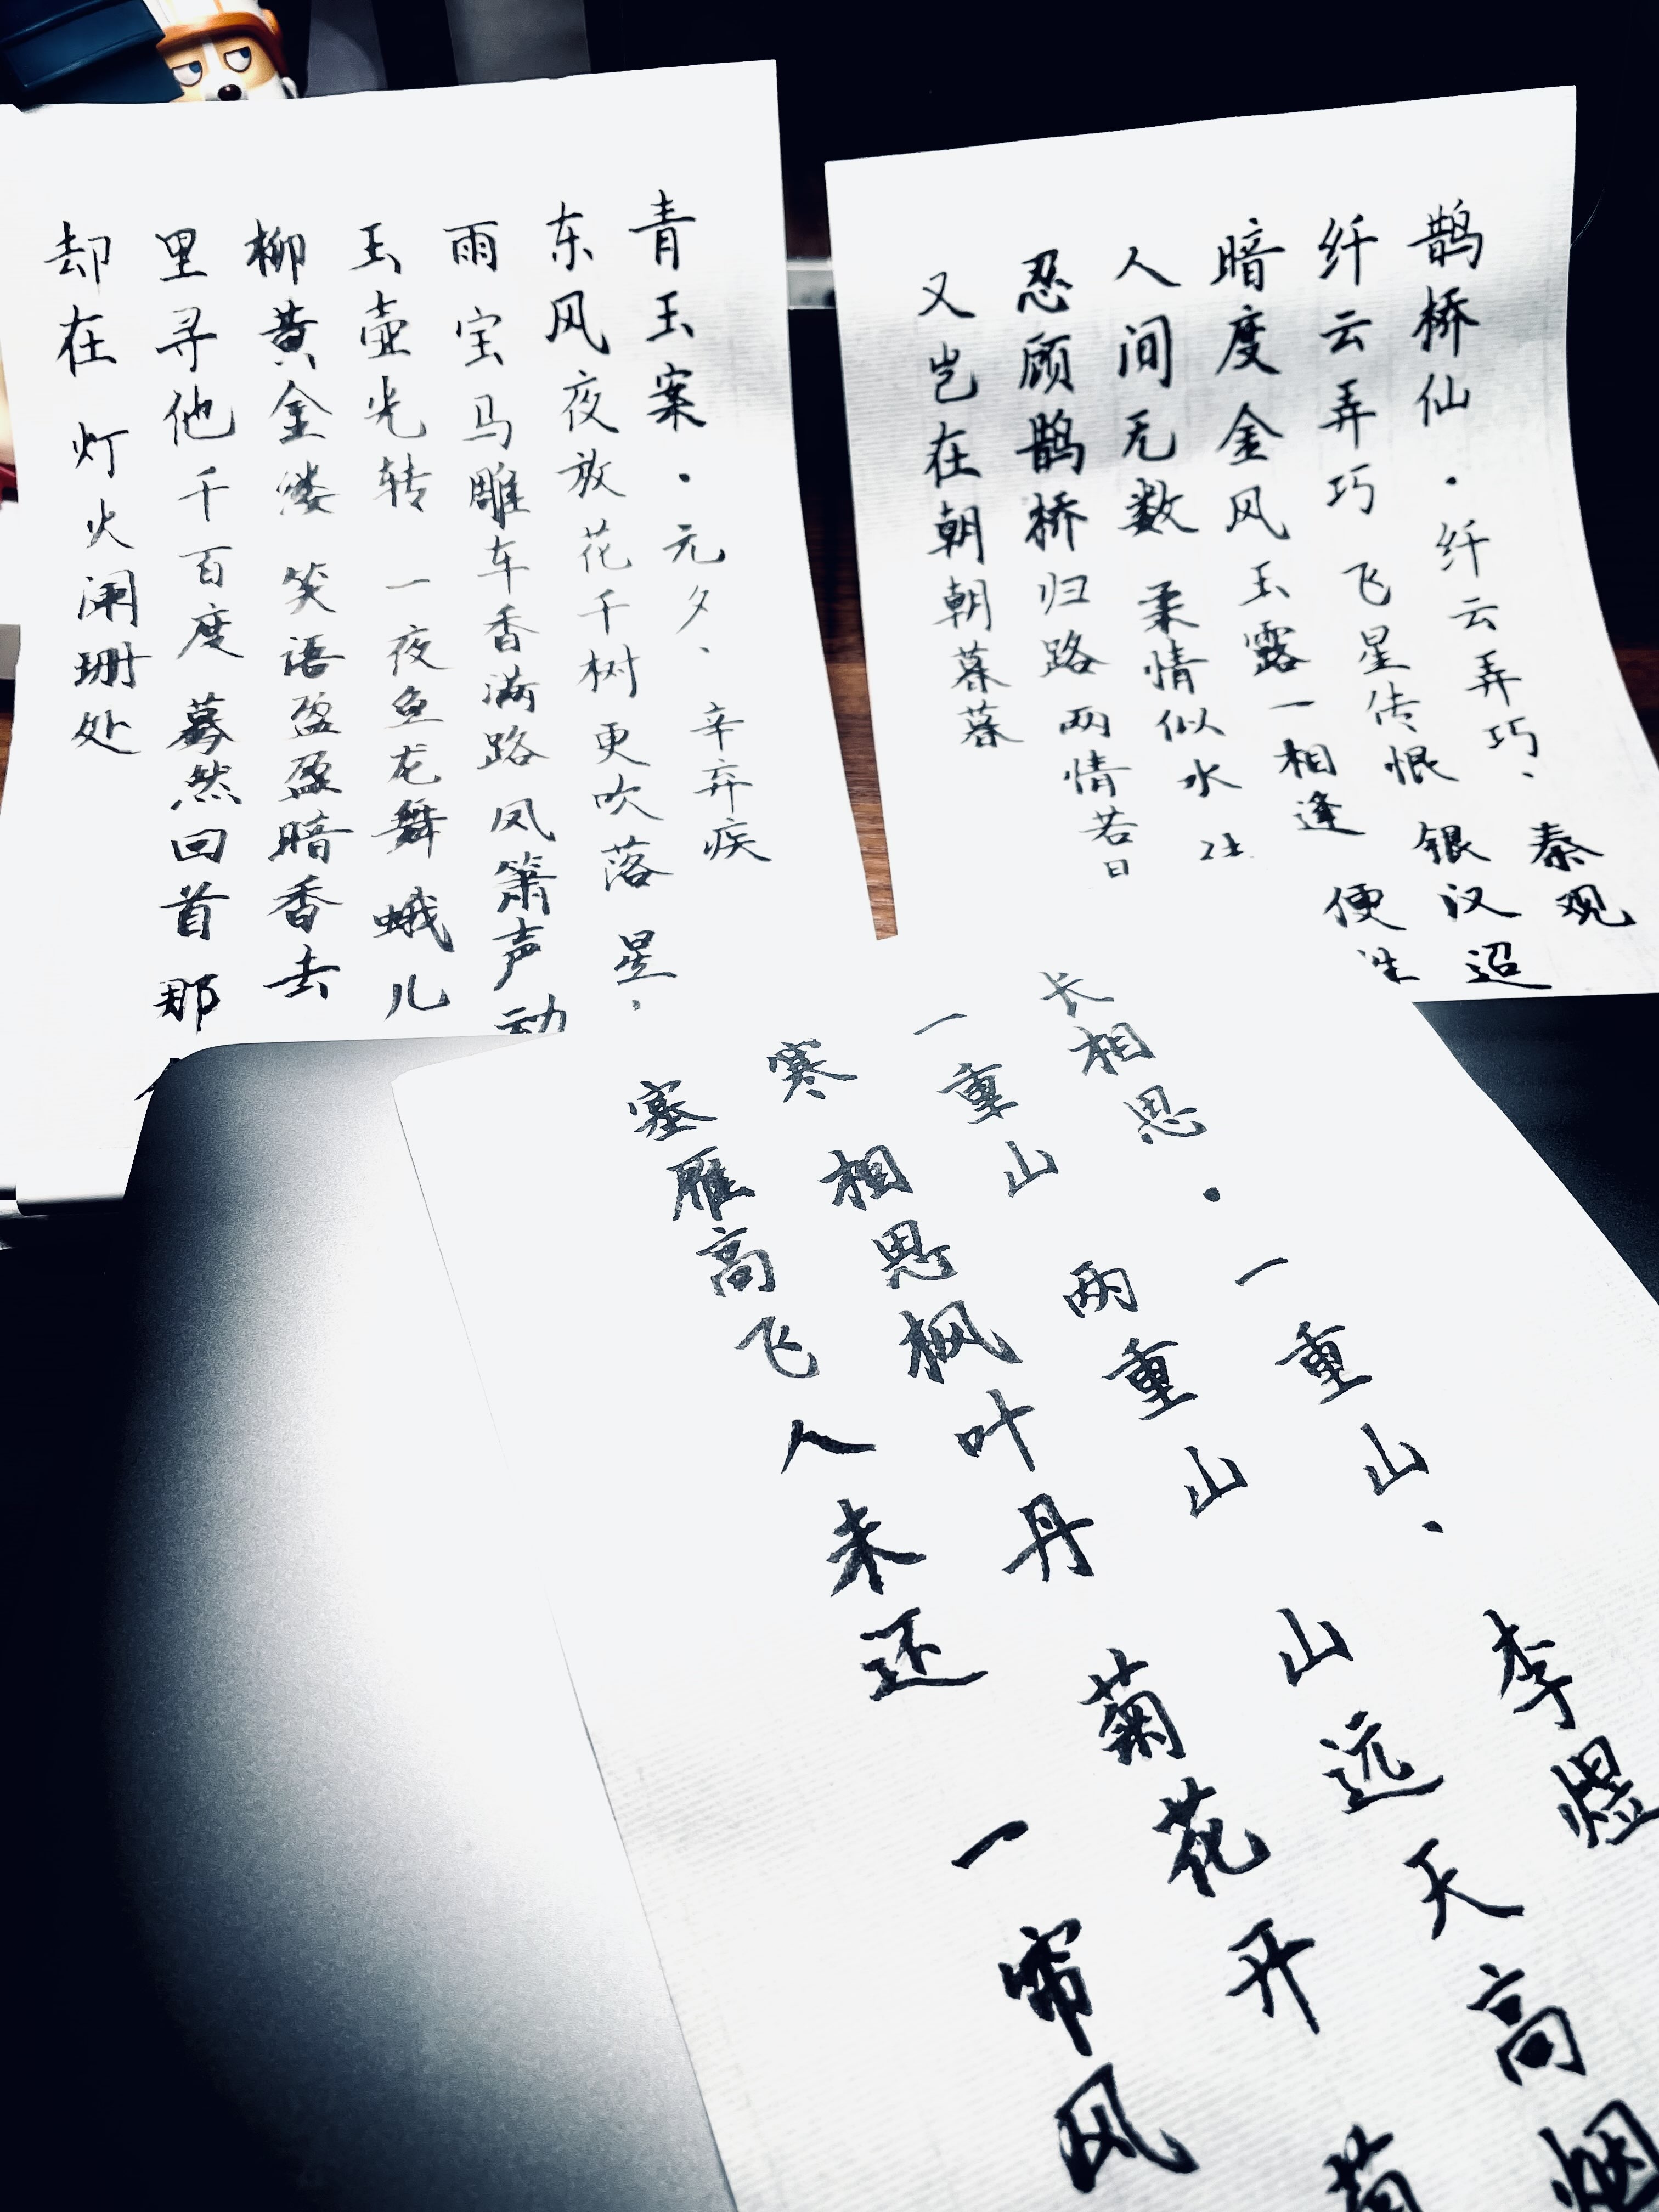 青玉案·元夕·辛弃疾
东风夜放花千树 更吹落 星
雨 宝马雕车香满路 凤箫声动
玉壶光转 一夜鱼龙舞 蛾儿
柳黄金缕 笑语盈盈暗香去
里寻他千百度 蓦然回首 那
却在 灯火阑珊处
鹊桥仙·纤云弄巧·秦观
纤云弄巧 飞星传恨 银汉迢
暗度 金风玉露一相逢 便
人间无数 柔情似水
忍顾鹊桥归路 两情若
又岂在朝朝暮暮
长相思·一重山·李煜
一重山 两重山 山远天高烟
寒 相思枫叶丹 菊花开 菊
塞雁高飞人未还 一帘风